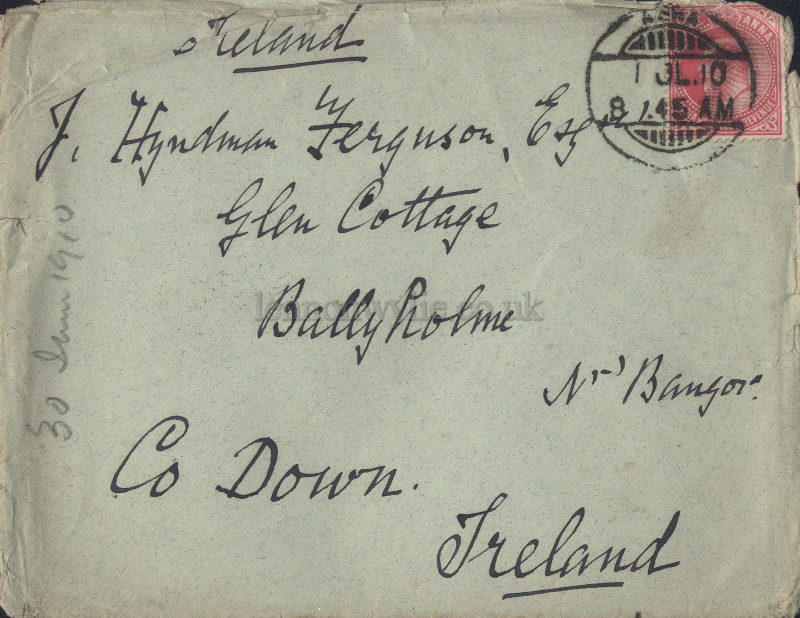 Ireland
AGRA
1 JL.10
8 7.45 AM
ANNA
J. Hyndman Ferguson, Esqre
Glen Cottage
Ballyholme
lennonwylie.co.uk
Nr Bangor.
Co Down.
Ireland
30 June 1910